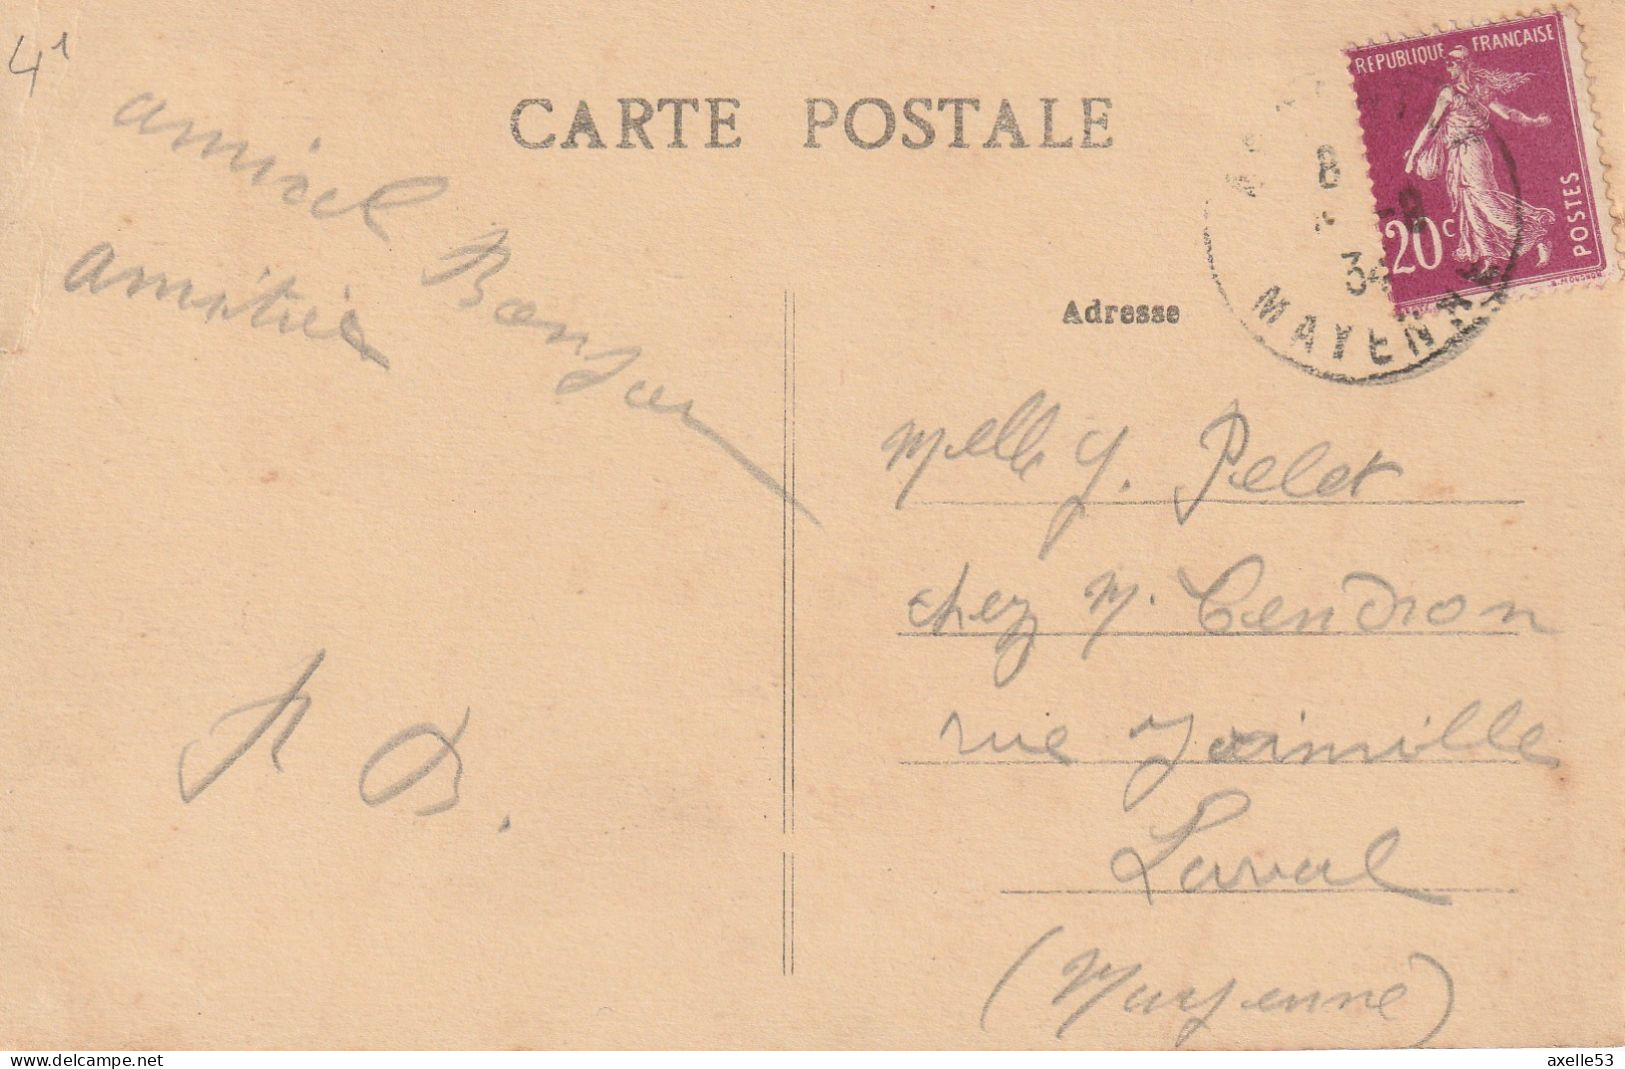 4¹
CARTE POSTALE
REPUBLIQUE FRANÇAISE
POSTES
20c
8
-8
34
MAYENNE
amical Bonjour
amitiés
R B.
Adresse
Melle Y. Pelet
chez M. Cendron
rue Joinville
Laval
(Mayenne)
axelle53